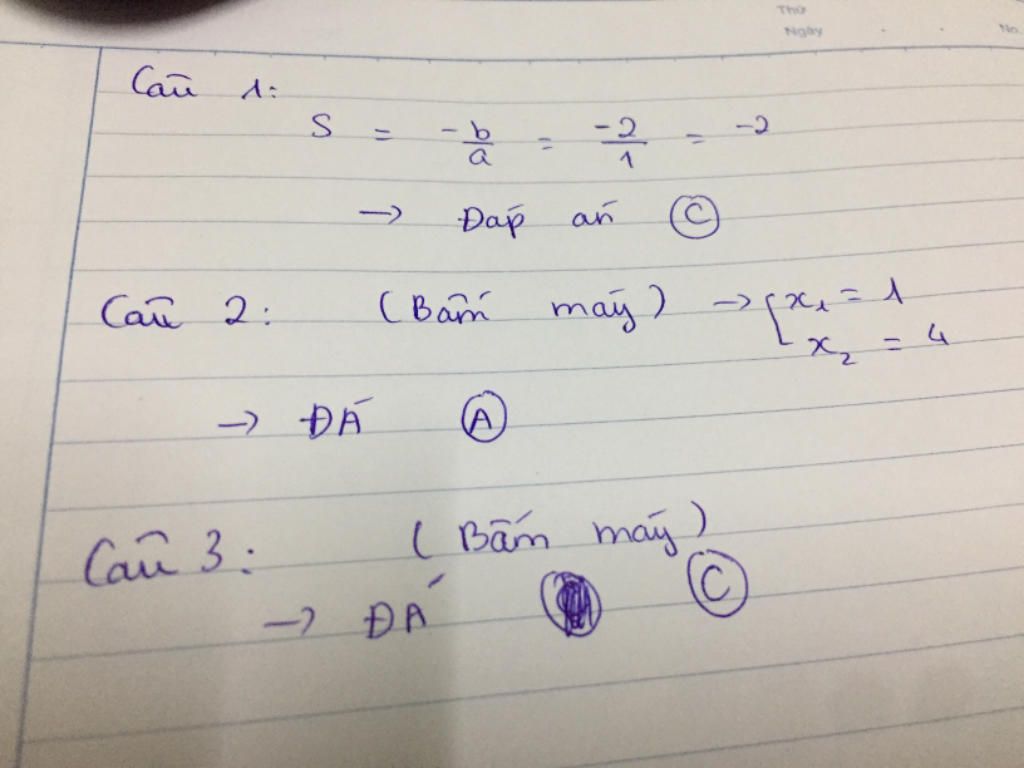 Thứ
Ngày
No.
Câu 1:
S = -b/a = -2/1 = -2
→ Đáp án C
Câu 2: (Bấm máy) → [x₁ = 1
x₂ = 4
→ ĐÁ A
Câu 3: (Bấm máy)
→ ĐÁ C